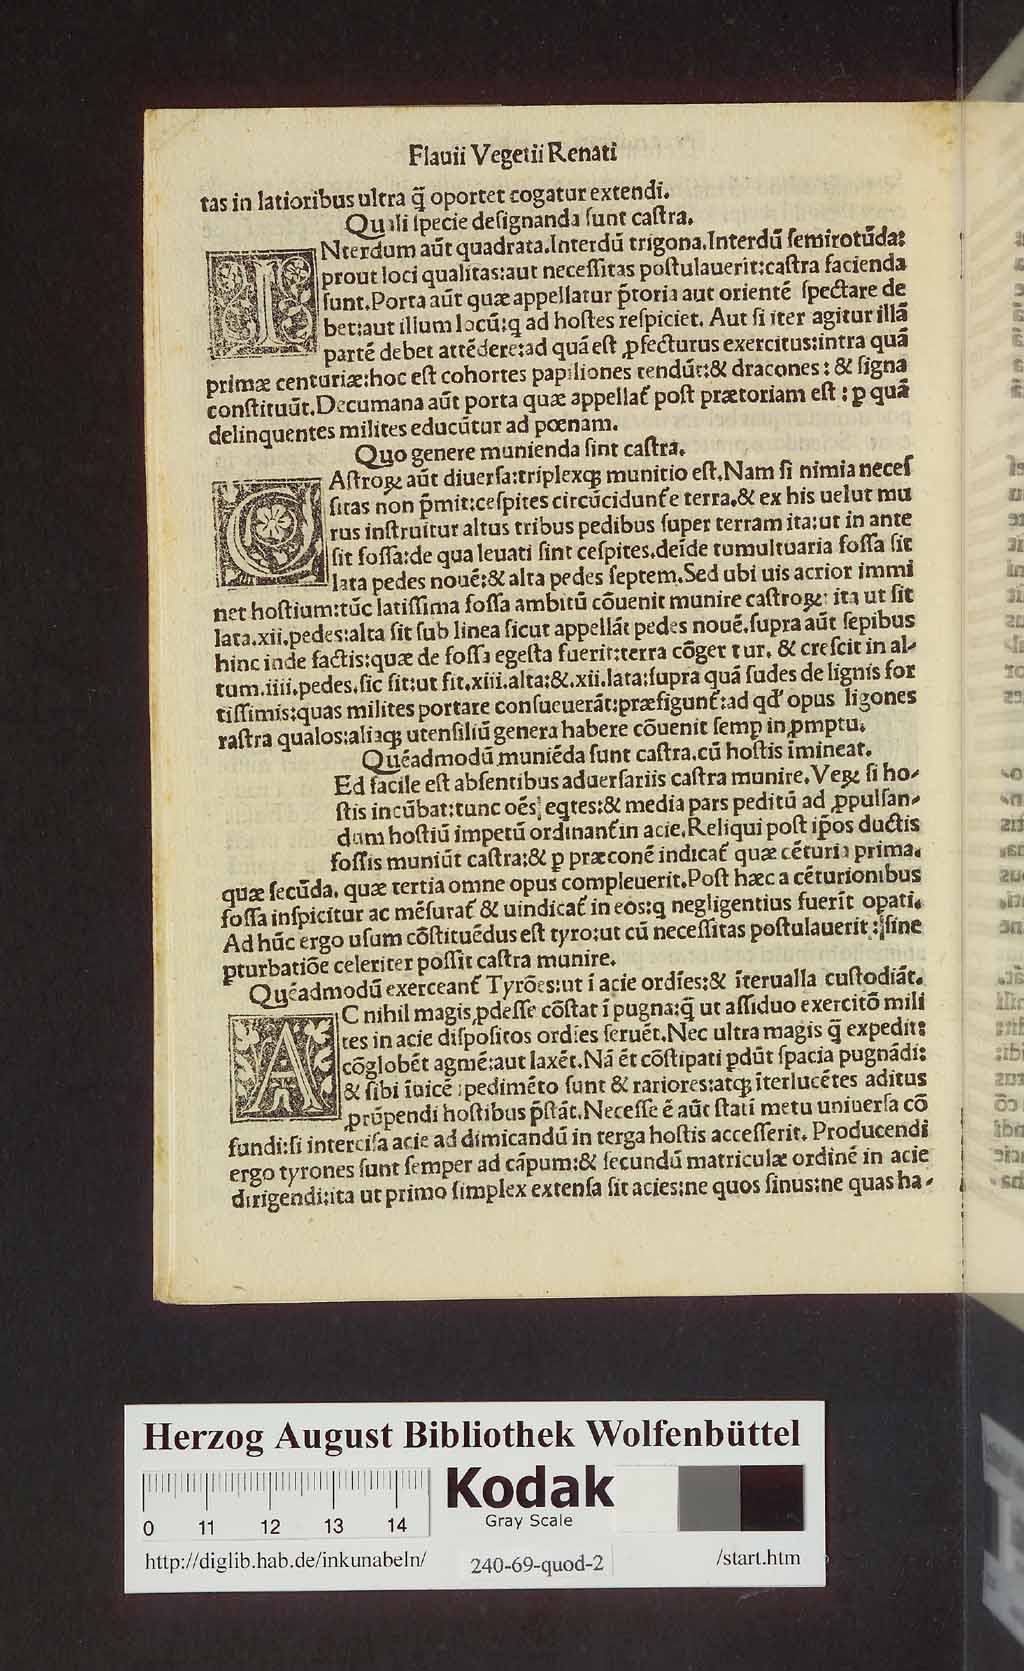 Flauii Vegetii Renati
tas in latioribus ultra q̃ oportet cogatur extendi.
Quali ſpecie deſignanda ſunt caſtra.
INterdum aūt quadrata.Interdū trigona.Interdū ſemirotūda:
prout loci qualitas:aut neceſſitas poſtulauerit:caſtra facienda
ſunt.Porta aūt quæ appellatur p̃toria aut orientē ſpectare de
bet:aut illum locū:q ad hoſtes reſpiciet. Aut ſi iter agitur illā
partē debet attēdere:ad quā eſt ꝓfecturus exercitus:intra quā
primæ centuriæ:hoc eſt cohortes papiliones tendūt:& dracones: & ſigna
conſtituūt.Decumana aūt porta quæ appellat̃ poſt prætoriam eſt: ꝑ quā
delinquentes milites educūtur ad pœnam.
Quo genere munienda ſint caſtra.
CAſtroꝝ aūt diuerſa:triplexqꝫ munitio eſt.Nam ſi nimia neceſ
ſitas non p̃mit:ceſpites circūcidunt̃e terra.& ex his uelut mu
rus inſtruitur altus tribus pedibus ſuper terram ita:ut in ante
ſit foſſa:de qua leuati ſint ceſpites.deīde tumultuaria foſſa ſit
lata pedes nouē:& alta pedes ſeptem.Sed ubi uis acrior immi
net hoſtium:tūc latiſſima foſſa ambitū cōuenit munire caſtroꝝ: ita ut ſit
lata.xii.pedes:alta ſit ſub linea ſicut appellāt pedes nouē.ſupra aūt ſepibus
hinc inde factis:quæ de foſſa egeſta fuerit:terra cōgeritur. & creſcit in al-
tum.iiii.pedes.ſic ſit:ut ſit.xiii.alta:&.xii.lata:ſupra quā ſudes de lignis for
tiſſimis:quas milites portare conſueuerāt:præfigunt̃:ad qd' opus ligones
raſtra qualos:aliaqꝫ utenſiliū genera habere cōuenit ſemp in ꝓmptu.
Quēadmodū muniēda ſunt caſtra.cū hoſtis īmineat.
Ed facile eſt abſentibus aduerſariis caſtra munire.Veꝝ ſi ho-
ſtis incūbat:tunc oēs eqtes:& media pars peditū ad ꝓpulſan-
dum hoſtiū impetū ordinant̃in acie.Reliqui poſt ip̄os ductis
foſſis muniūt caſtra:& ꝑ præconē indicat̃ quæ cēturia prima.
quæ ſecūda. quæ tertia omne opus compleuerit.Poſt hæc a cēturionibus
foſſa inſpicitur ac mēſurat̃ & uindicat̃ in eos:q negligentius fuerīt opati.
Ad hūc ergo uſum cōſtituēdus eſt tyro:ut cū neceſſitas poſtulauerit: ſine
ꝑturbatiōe celeriter poſſit caſtra munire.
Quēadmodū exerceant̃ Tyrōes:ut ī acie ordīes:& īterualla cuſtodiāt.
AC nihil magis ꝓdeſſe cōſtat ī pugna:q̃ ut aſſiduo exercitō mili
tes in acie diſpoſitos ordīes ſeruēt.Nec ultra magis q̃ expedit:
cōglobēt agmē:aut laxēt.Nā ēt cōſtipati ꝑdūt ſpacia pugnādi:
& ſibi īuicē īpedimēto ſunt & rariores:atqꝫ īterlucētes aditus
ꝓrūpendi hoſtibus p̃ſtāt.Neceſſe ē aūt ſtati metu uniuerſa cō
fundi:ſi interciſa acie ad dimicandū in terga hoſtis acceſſerit. Producendi
ergo tyrones ſunt ſemper ad cāpum:& ſecundū matriculæ ordinē in acie
dirigendi:ita ut primo ſimplex extenſa ſit acies:ne quos ſinus:ne quas ha-
Herzog August Bibliothek Wolfenbüttel
Kodak
Gray Scale
0 11 12 13 14
http://diglib.hab.de/inkunabeln/ 240-69-quod-2 /start.htm